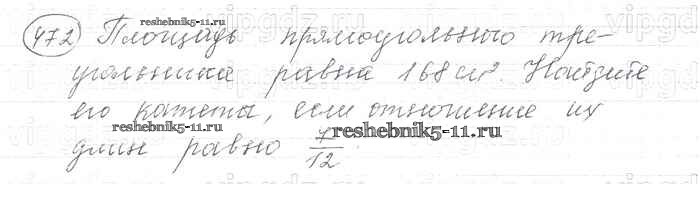 reshebnik5-11.ru
472 Площадь прямоугольного тре-
угольника равна 168 см². Найдите
его катеты, если отношение их
reshebnik5-11.ru
reshebnik5-11.ru
длин равно 7/12.